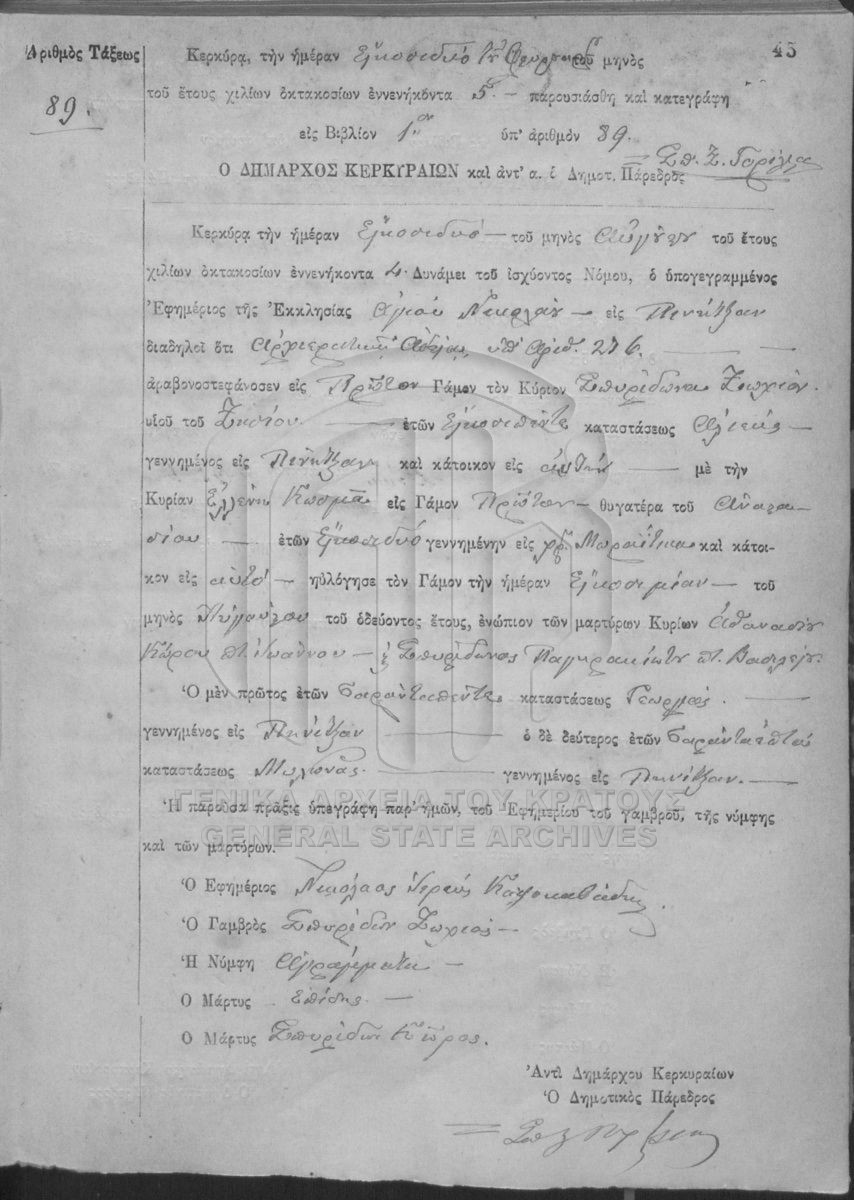 Ἀριθμὸς Τάξεως
89.
45
Κερκύρᾳ, τὴν ἡμέραν Εἴκοσιδυό τοῦ μηνὸς
τοῦ ἔτους χιλίων ὀκτακοσίων ἐννενήκοντα 5 παρουσιάσθη καὶ κατεγράφη
εἰς Βιβλίον 1ον ὑπ' ἀριθμὸν 89.
Ο ΔΗΜΑΡΧΟΣ ΚΕΡΚΥΡΑΙΩΝ καὶ ἀντ' α. ὁ Δημοτ. Πάρεδρος
Κερκύρᾳ τὴν ἡμέραν Εἴκοσιδυό τοῦ μηνὸς Αὐγούστου τοῦ ἔτους
χιλίων ὀκτακοσίων ἐννενήκοντα 4 Δυνάμει τοῦ ἰσχύοντος Νόμου, ὁ ὑπογεγραμμένος
Ἐφημέριος τῆς Ἐκκλησίας Ἁγίου Νικολάου εἰς
διαδηλοῖ ὅτι Ἀρχιερατικῇ Ἀδείᾳ ὑπ' Ἀριθ. 276
ἀραβονοστεφάνοσεν εἰς Πρῶτον Γάμον τὸν Κύριον Σπυρίδωνα Ζωχιὸν
υἱοῦ τοῦ ἐτῶν Εἴκοσιπέντε καταστάσεως Ἁλιεύς
γεννημένος εἰς καὶ κάτοικον εἰς αὐτήν μὲ τὴν
Κυρίαν Ἑλλένη Κοσμᾶ εἰς Γάμον Πρῶτον θυγατέρα τοῦ Ἀναστα-
σίου ἐτῶν Εἴκοσιδυό γεννημένην εἰς Μωραΐτικα καὶ κάτοι-
κον εἰς αὐτό ηὐλόγησε τὸν Γάμον τὴν ἡμέραν Εἴκοσιμίαν τοῦ
μηνὸς τοῦ ὁδεύοντος ἔτους, ἐνώπιον τῶν μαρτύρων Κυρίων Ἀθανασίου
Κώρου π. Ἰωάννου Σπυρίδωνος Παγκρακιώτη π. Βασιλείου
Ὁ μὲν πρῶτος ἐτῶν Σαράνταπέντε καταστάσεως Γεωργός.
γεννημένος εἰς ὁ δὲ δεύτερος ἐτῶν Σαράνταἑπτά
καταστάσεως γεννημένος εἰς
ΓΕΝΙΚΑ ΑΡΧΕΙΑ ΤΟΥ ΚΡΑΤΟΥΣ
Ἡ παροῦσα πρᾶξις ὑπεγράφη παρ' ἡμῶν, τοῦ Ἐφημερίου τοῦ γαμβροῦ, τῆς νύμφης
GENERAL STATE ARCHIVES
καὶ τῶν μαρτύρων.
Ὁ Ἐφημέριος Νικόλαος Ἱερεὺς
Ὁ Γαμβρὸς Σπυρίδων Ζωχιός
Ἡ Νύμφη Ἀγράμματη
Ὁ Μάρτυς Ἐπίσης
Ὁ Μάρτυς Σπυρίδων Κῶρος.
Ἀντὶ Δημάρχου Κερκυραίων
Ὁ Δημοτικὸς Πάρεδρος